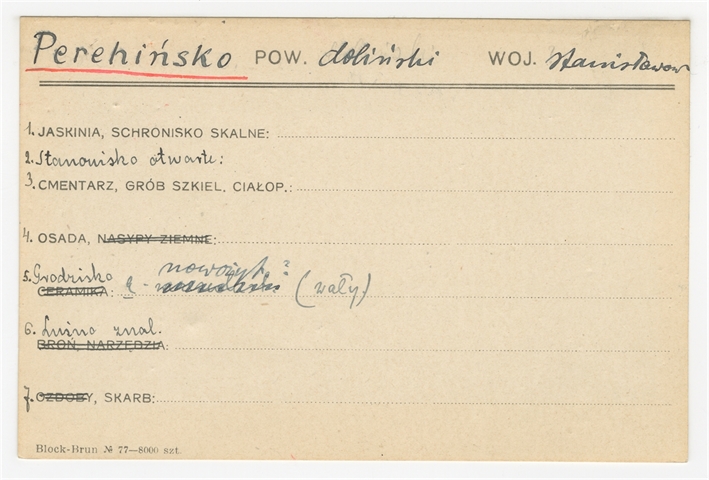 Perehińsko POW. doliński WOJ. stanisławow
1. JASKINIA, SCHRONISKO SKALNE:
2. Stanowisko otwarte:
3. CMENTARZ, GRÓB SZKIEL. CIAŁOP.:
4. OSADA, NASYPY ZIEMNE:
nowożyt.?
5. Grodzisko (wały)
CERAMIKA:
6. Luźno znal.
BROŃ, NARZĘDZIA:
7. OZDOBY, SKARB:
Block-Brun № 77—8000 szt.